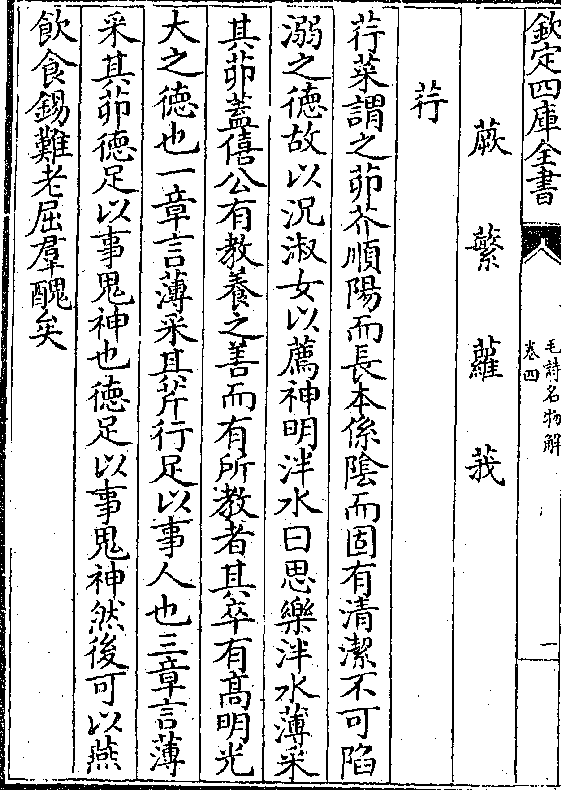 欽定四庫全書
毛詩名物解
卷四
一
蕨 蘩 蘿 莪
荇
荇菜謂之茆芥順陽而長本係陰而固有清潔不可陷
溺之徳故以况淑女以薦神明泮水曰思樂泮水薄采
其茆蓋僖公有教養之善而有所教者其卒有髙明光
大之徳也一章言薄采其芹行足以事人也三章言薄
采其茆徳足以事鬼神也徳足以事鬼神然後可以燕
飲食錫難老屈羣醜矣